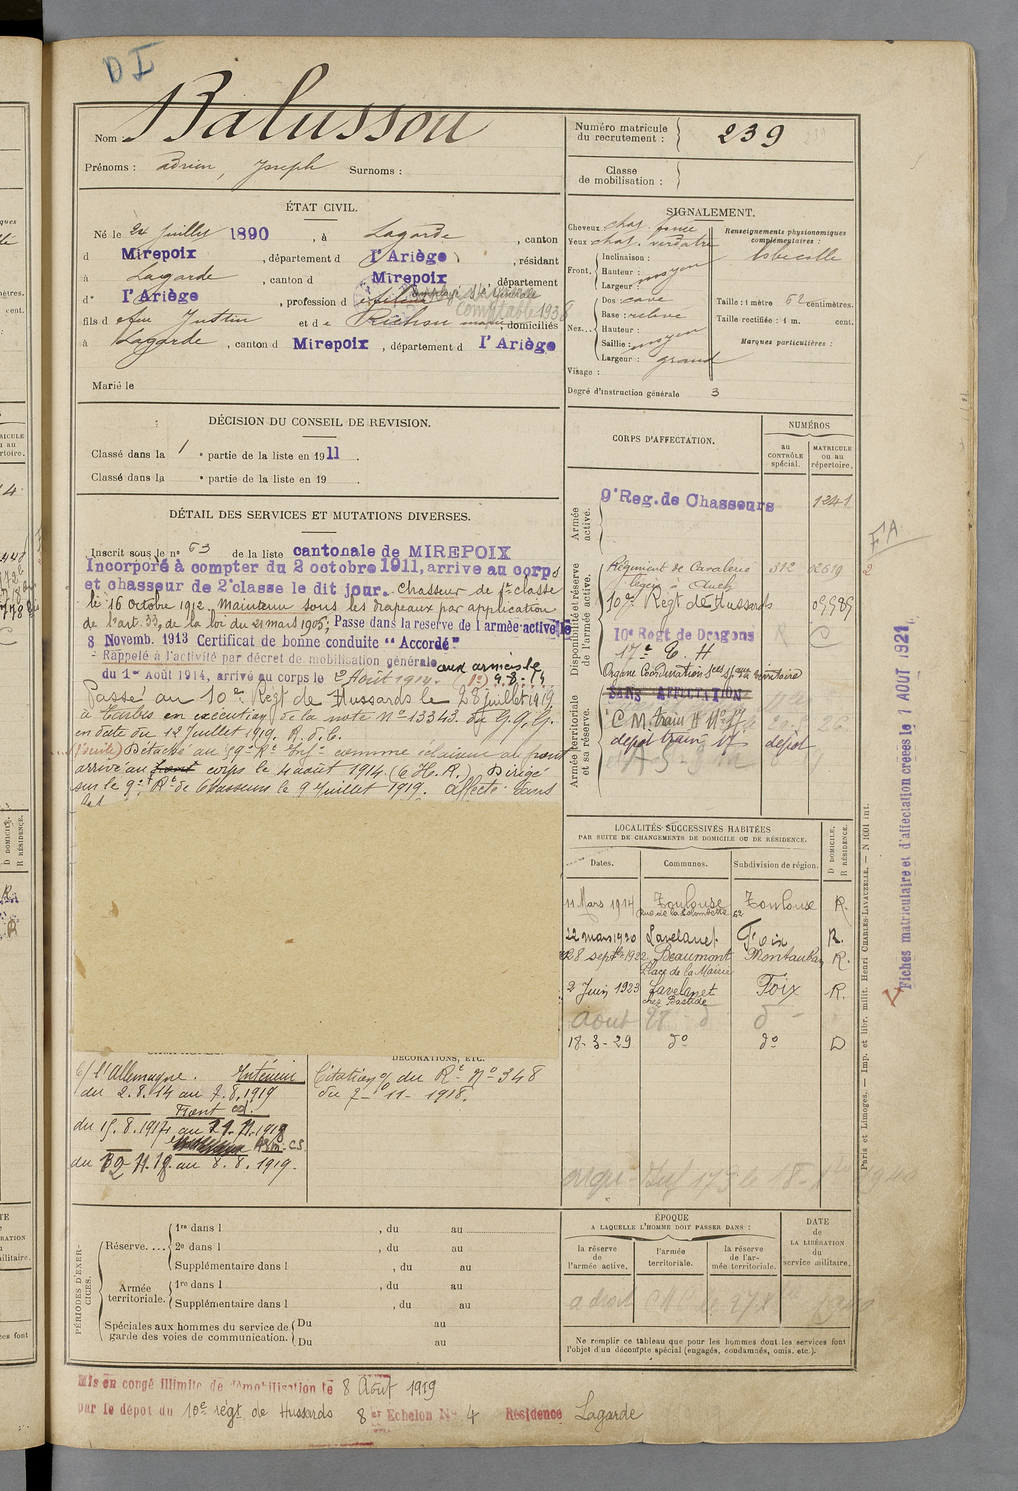 D I
Nom Balussou
Prénoms : Adrien, Joseph Surnoms :
Numéro matricule du recrutement : 239
Classe de mobilisation :
ÉTAT CIVIL.
Né le 24 Juillet 1890, à Lagarde, canton
d Mirepoix, département d l'Ariège, résidant
à Lagarde, canton d Mirepoix, département
d' l'Ariège, profession d
comptable 1938
fils d et d e domiciliés
à Lagarde, canton d Mirepoix, département d l'Ariège
Marié le
SIGNALEMENT.
Cheveux chat. foncé
Yeux chat. verdâtre
Front. Inclinaison :
Hauteur : moyen
Largeur :
Nez. Dos : cave
Base : relevé
Hauteur :
Saillie : moyen
Largeur : grand
Visage :
Renseignements physionomiques complémentaires :
Taille : 1 mètre 62 centimètres.
Taille rectifiée : 1 m. cent.
Marques particulières :
Degré d'instruction générale 3
DÉCISION DU CONSEIL DE REVISION.
Classé dans la 1 e partie de la liste en 1911.
Classé dans la e partie de la liste en 19
DÉTAIL DES SERVICES ET MUTATIONS DIVERSES.
Inscrit sous le n° 63 de la liste cantonale de MIREPOIX
Incorporé à compter du 2 octobre 1911, arrive au corps
et chasseur de 2e classe le dit jour. Chasseur de 1re classe
le 16 octobre 1912. Maintenu sous les drapeaux par application
de l'art. 33, de la loi du 21 mars 1905; Passe dans la reserve de l'armée active le
8 Novemb. 1913 Certificat de bonne conduite "Accordé"
Rappelé à l'activité par décret de mobilisation générale aux armées le
du 1er Août 1914, arrivé au corps le 2 Août 1914. 9-8-14
Passé au 10e Regt de Hussards le 28 juillet 1919
à Tarbes en exécution de la note N° 13343 du G.Q.G.
en date du 12 Juillet 1919. R. d. C.
Détaché au 59e Rt Infie comme éclaireur au front
arrivé au front corps le 4 août 1914 (C.H.R.) Dirigé
sur le 9e Rt de Chasseurs le 9 Juillet 1919. Affecté dans
CORPS D'AFFECTATION.
NUMÉROS
au CONTRÔLE spécial.
MATRICULE ou au répertoire.
Armée active.
9e Reg. de Chasseurs 1241
Disponibilité et réserve de l'armée active.
Régiment de Cavalerie légère à Auch 312 02619
10e Regt de Hussards
10e Regt de Dragons
17e E. H
Armée territoriale et sa réserve.
SANS AFFECTATION
C M. train H N° 17
dépôt train 17 dépôt
LOCALITÉS SUCCESSIVES HABITÉES
PAR SUITE DE CHANGEMENTS DE DOMICILE OU DE RÉSIDENCE.
Dates. Communes. Subdivision de région. D DOMICILE. R RÉSIDENCE.
11 Mars 1914 Toulouse Toulouse R.
Rue de la Colombette 62
22 mars 1920 Lavelanet Foix R.
28 septbre 1922 Beaumont Montauban R.
Place de la Mairie
2 Juin 1923 Lavelanet Foix R.
chez Bastide
aout 28 d° d°
18-3-29 d° d° D
DÉCORATIONS, ETC.
C/ l'Allemagne. Intérieur
du 2.8.14 au 7.8.1919
Citation O/ du Rt N° 348
du 7-11-1918.
du 15.8.1914 au 11.11.1918
du 12.11.18 au 8.8.1919.
PÉRIODES D'EXERCICES.
Réserve.... 1re dans l , du au
2e dans l , du au
Supplémentaire dans l , du au
Armée territoriale. 1re dans l , du au
Supplémentaire dans l , du au
Spéciales aux hommes du service de garde des voies de communication. Du au
Du au
ÉPOQUE
A LAQUELLE L'HOMME DOIT PASSER DANS :
la réserve de l'armée active.
l'armée territoriale.
la réserve de l'armée territoriale.
DATE de LA LIBÉRATION du service militaire.
Ne remplir ce tableau que pour les hommes dont les services font
l'objet d'un décompte spécial (engagés, condamnés, omis, etc.).
Mis en congé illimité de démobilisation le 8 Août 1919
par le dépôt du 10e régt de Hussards 8er Echelon N° 4 Résidence Lagarde
F A
2
Fiches matriculaire et d'affectation créées le 1 AOUT 1921
Paris et Limoges. — Imp. et libr. milit. Henri CHARLES-LAVAUZELLE. — N 1001 int.